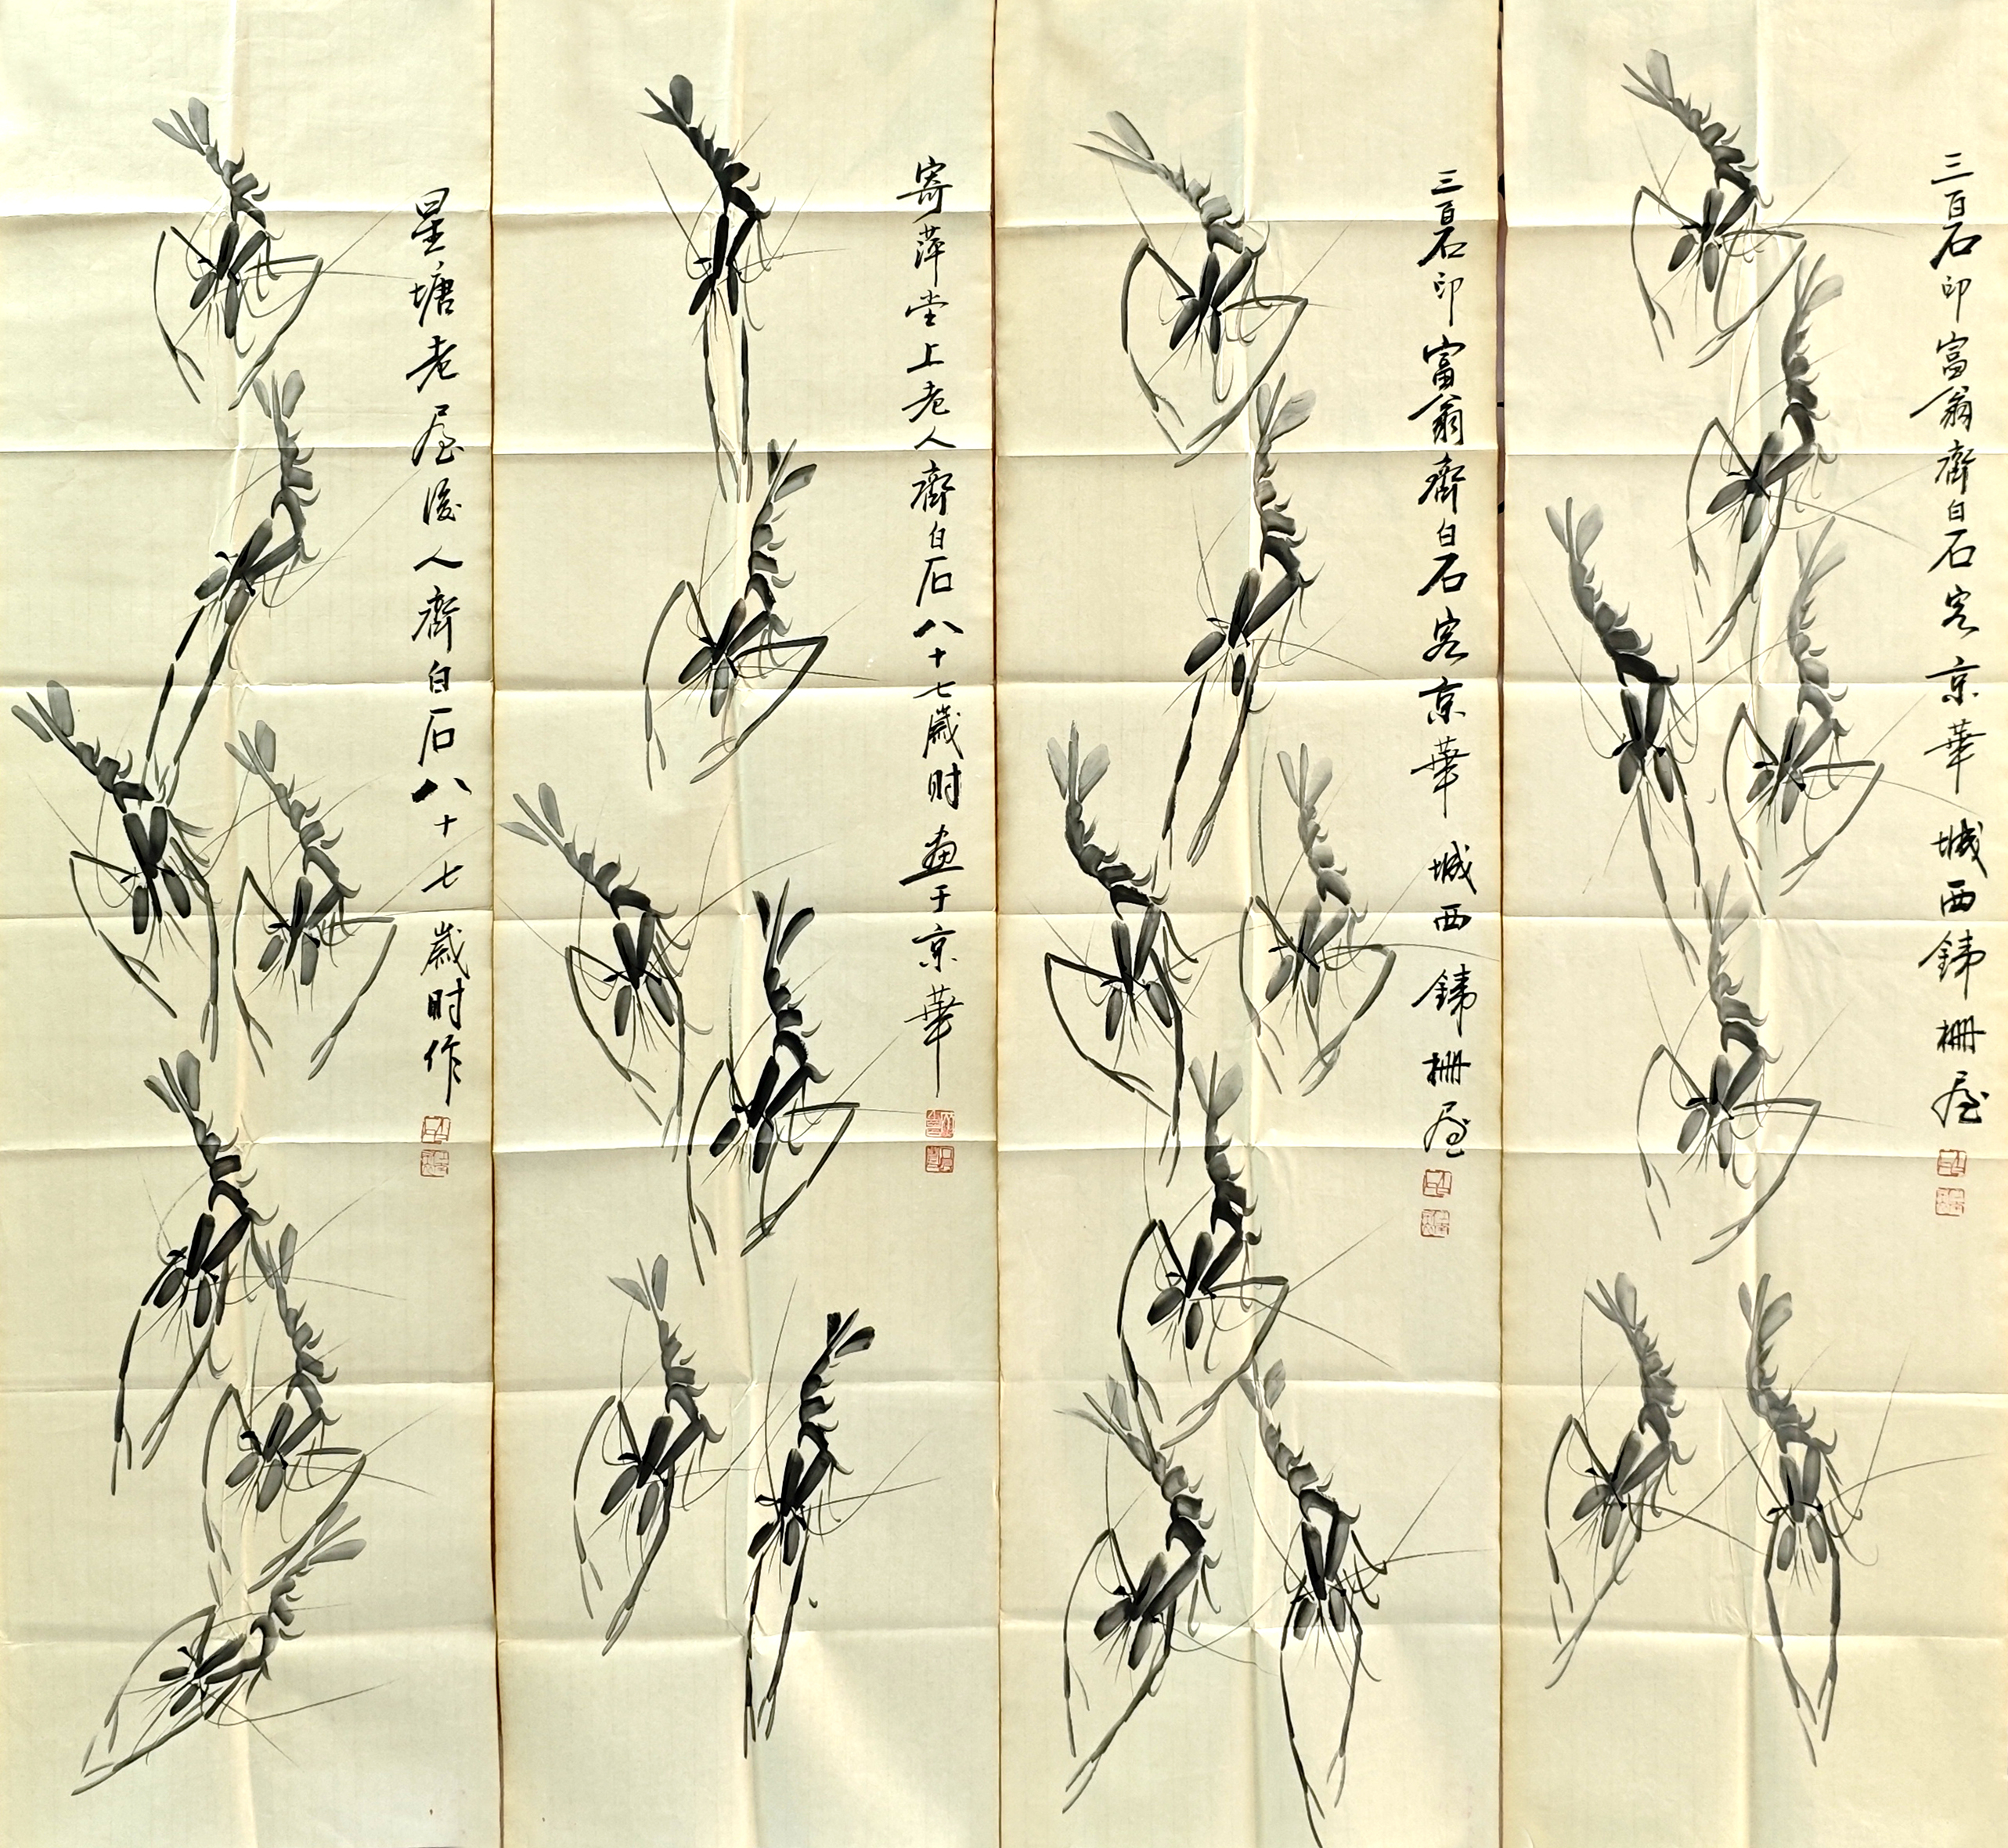 三百石印富翁齊白石客京華城西鐵柵屋
三百石印富翁齊白石客京華城西鐵柵屋
寄萍堂上老人齊白石八十七歲时画于京華
星塘老屋後人齊白石八十七歲时作